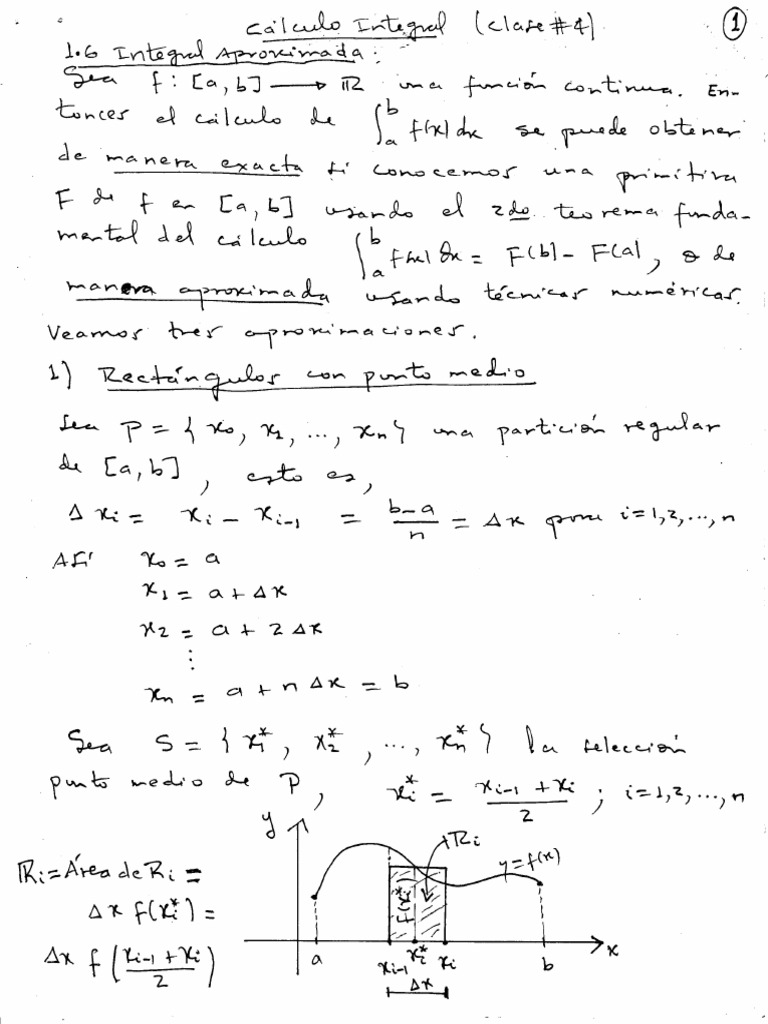 Cálculo Integral (Clase #4) 1
1.6 Integral Aproximada:
Sea f: [a, b] ⟶ ℝ una función continua. En-
tonces el cálculo de ∫_a^b f(x) dx se puede obtener
de manera exacta si conocemos una primitiva
F de f en [a, b] usando el 2do teorema funda-
mental del cálculo ∫_a^b f(x) dx = F(b) - F(a), o de
manera aproximada usando técnicas numéricas.
Veamos tres aproximaciones.
1) Rectángulos con punto medio
Sea P = { x₀, x₁, ..., xₙ } una partición regular
de [a, b], esto es,
Δxᵢ = xᵢ - xᵢ₋₁ = (b-a)/n = Δx para i=1,2,...,n
Así x₀ = a
x₁ = a + Δx
x₂ = a + 2Δx
⋮
xₙ = a + nΔx = b
Sea S = { x₁*, x₂*, ..., xₙ* } la selección
punto medio de P, xᵢ* = (xᵢ₋₁ + xᵢ)/2 ; i=1,2,...,n
y
Rᵢ
y=f(x)
Rᵢ = Área de Rᵢ =
Δx f(xᵢ*) =
Δx f((xᵢ₋₁ + xᵢ)/2)
f(xᵢ*)
a xᵢ₋₁ xᵢ* xᵢ b x
Δx